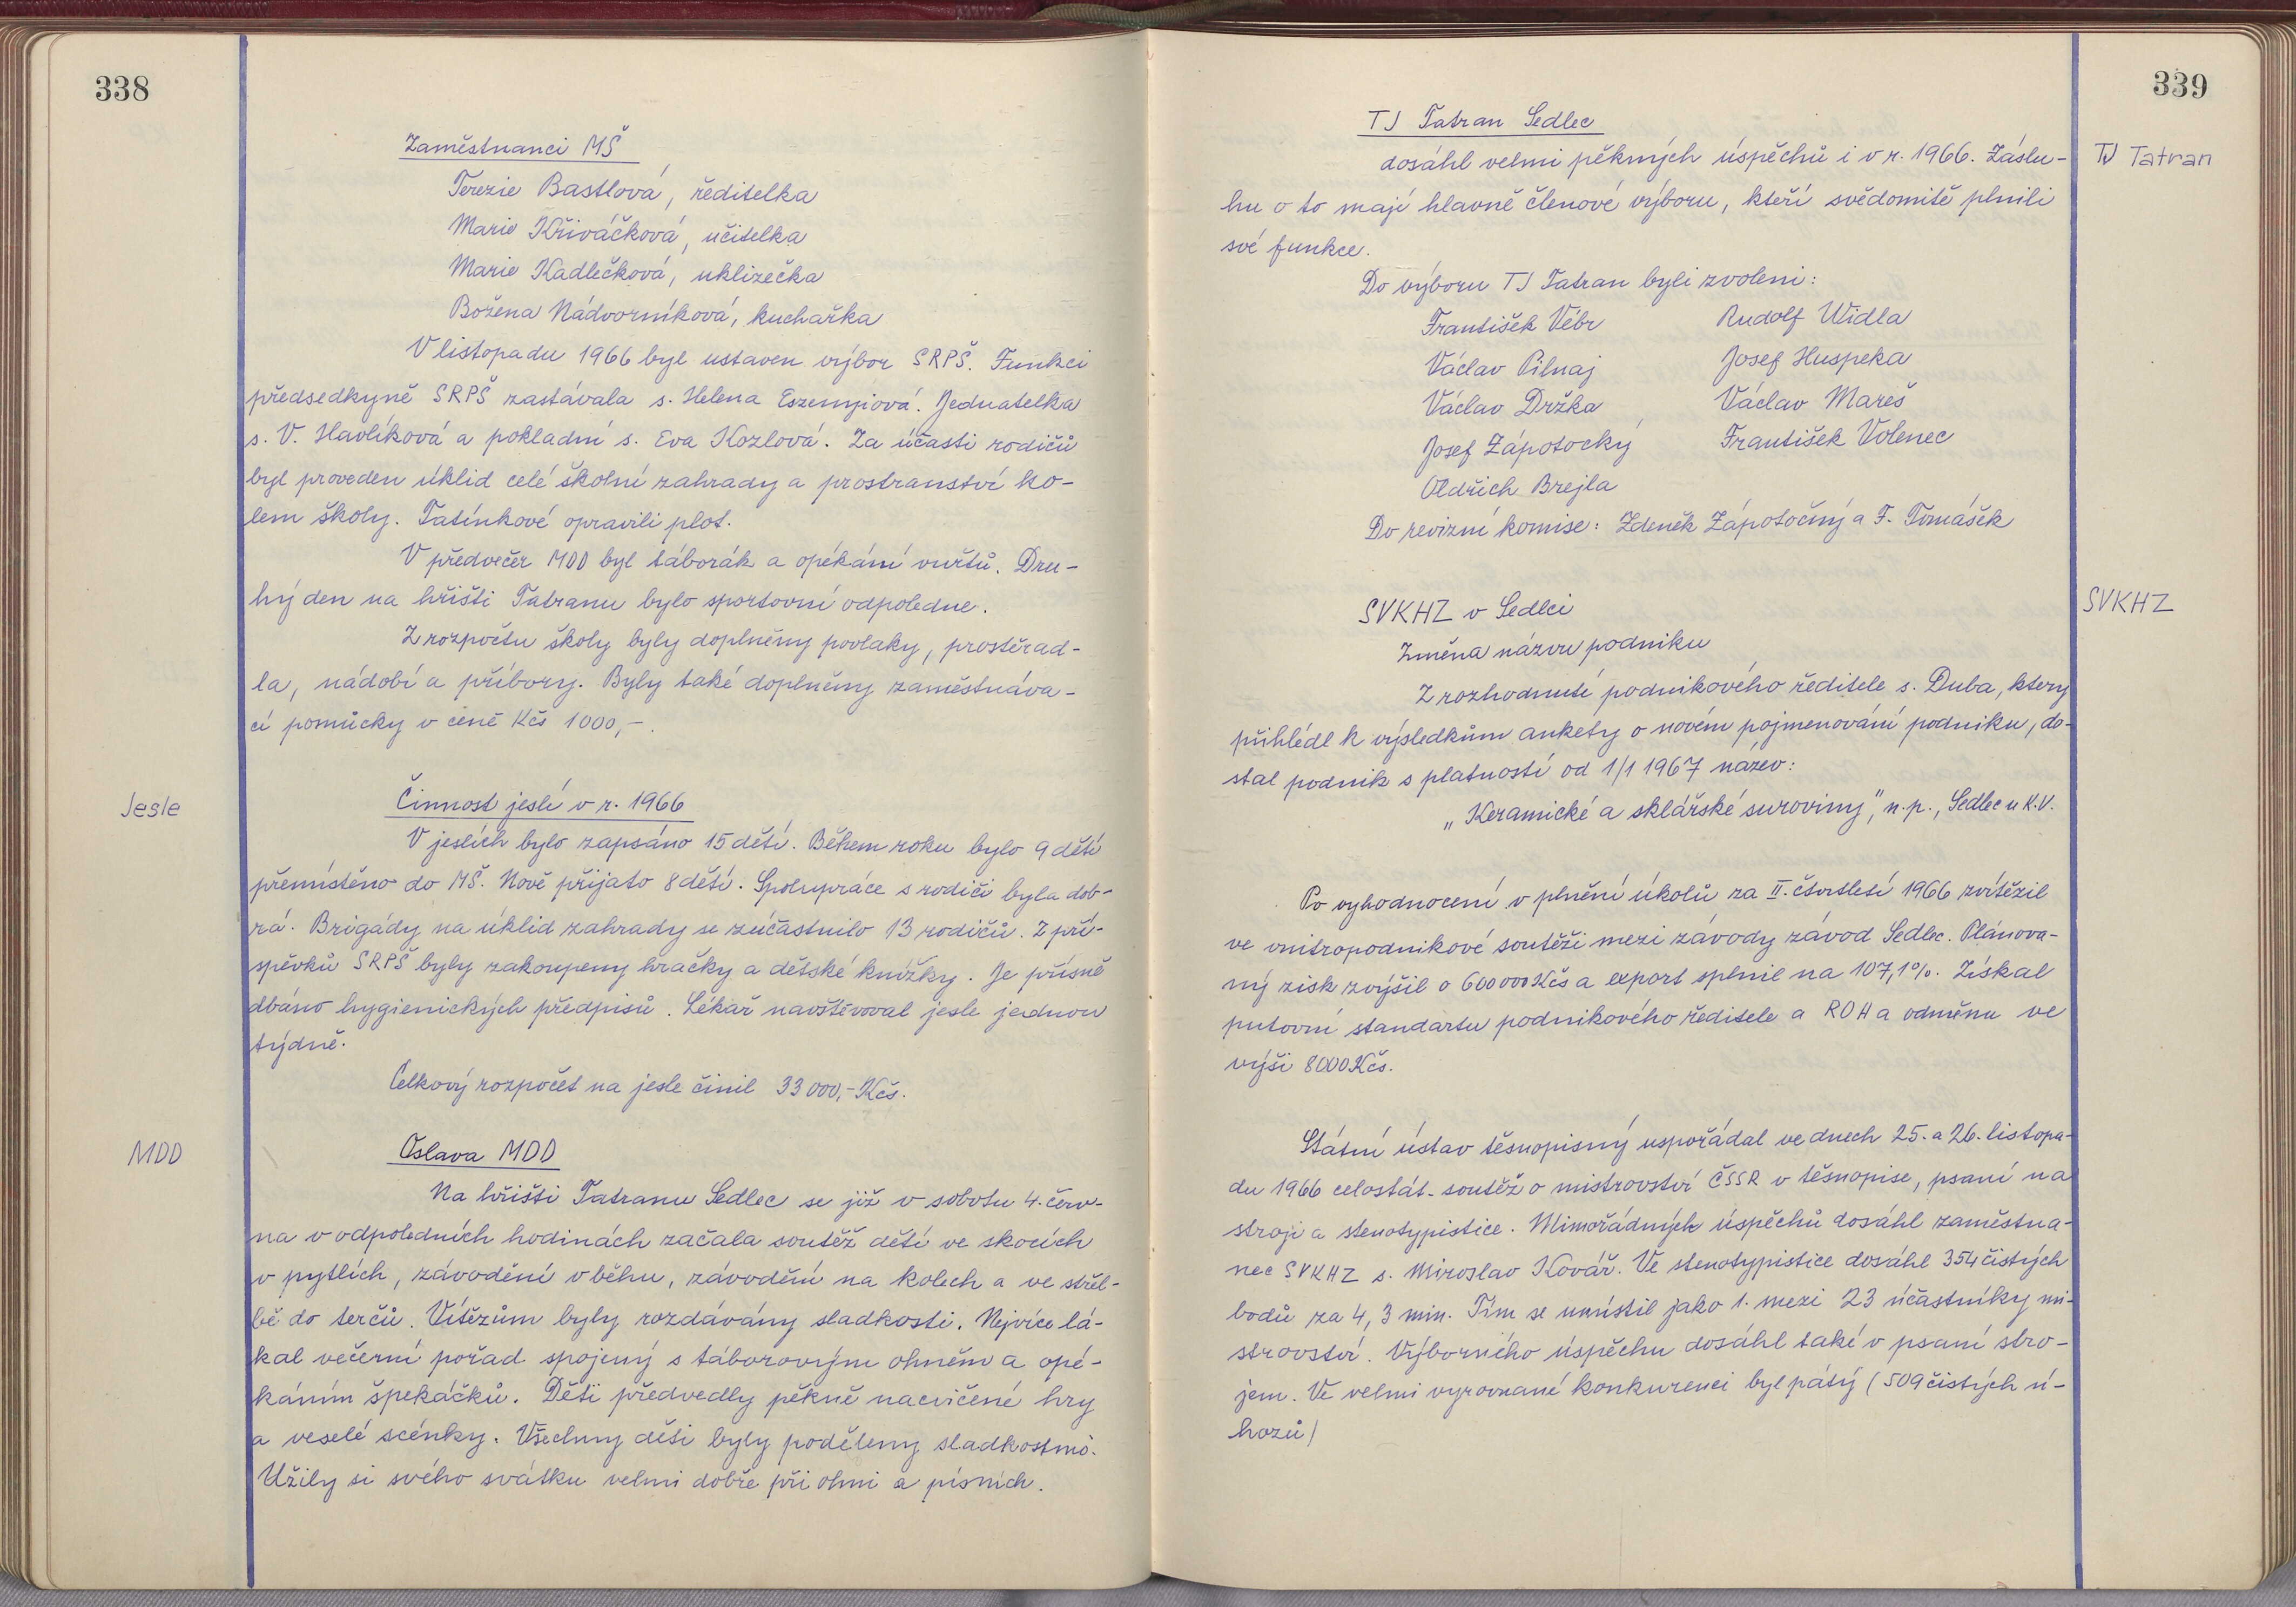 338
Zaměstnanci MŠ
Terezie Bastlová, ředitelka
Marie Křiváčková, učitelka
Marie Kadlečková, uklizečka
Božena Nádvorníková, kuchařka
V listopadu 1966 byl ustaven výbor SRPŠ. Funkci
předsedkyně SRPŠ zastávala s. Helena Eszenyiová. Jednatelka
s. V. Havlíková a pokladní s. Eva Kozlová. Za účasti rodičů
byl proveden úklid celé školní zahrady a prostranství ko-
lem školy. Tatínkové opravili plot.
V předvečer MDD byl táborák a opékání vuřtů. Dru-
hý den na hřišti Tatranu bylo sportovní odpoledne.
Z rozpočtu školy byly doplněny povlaky, prostěrad-
la, nádobí a příbory. Byly také doplněny zaměstnáva-
cí pomůcky v ceně Kčs 1000,-.
Jesle
Činnost jeslí v r. 1966
V jeslích bylo zapsáno 15 dětí. Během roku bylo 9 dětí
přemístěno do MŠ. Nově přijato 8 dětí. Spolupráce s rodiči byla dob-
rá. Brigády na úklid zahrady se zúčastnilo 13 rodičů. Z pří-
spěvků SRPŠ byly zakoupeny hračky a dětské knížky. Je přísně
dbáno hygienických předpisů. Lékař navštěvoval jesle jednou
týdně.
Celkový rozpočet na jesle činil 33 000,- Kčs.
MDD
Oslava MDD
Na hřišti Tatranu Sedlec se již v sobotu 4. červ-
na v odpoledních hodinách začala soutěž dětí ve skocích
v pytlích, závodění v běhu, závodění na kolech a ve střel-
bě do terčů. Vítězům byly rozdávány sladkosti. Nejvíce lá-
kal večerní pořad spojený s táborovým ohněm a opé-
káním špekáčků. Děti předvedly pěkně nacvičené hry
a veselé scénky. Všechny děti byly poděleny sladkostmi.
Užily si svého svátku velmi dobře při ohni a písních.
339
TJ Tatran Sedlec
TJ Tatran
dosáhl velmi pěkných úspěchů i v r. 1966. Záslu-
hu o to mají hlavně členové výboru, kteří svědomitě plnili
své funkce.
Do výboru TJ Tatran byli zvoleni:
František Vébr Rudolf Widla
Václav Pilnaj Josef Huspeka
Václav Držka Václav Mareš
Josef Zápotocký František Volenec
Oldřich Brejla
Do revizní komise: Zdeněk Zápotočný a F. Tomášek
SVKHZ v Sedlci
SVKHZ
Změna názvu podniku
Z rozhodnutí podnikového ředitele s. Duba, který
přihlédl k výsledkům ankéty o novém pojmenování podniku, do-
stal podnik s platností od 1/1 1967 název:
„Keramické a sklářské suroviny", n.p., Sedlec u K.V.
Po vyhodnocení v plnění úkolů za II. čtvrtletí 1966 zvítězil
ve vnitropodnikové soutěži mezi závody závod Sedlec. Plánova-
ný zisk zvýšil o 600 000 Kčs a export splnil na 107,1%. Získal
putovní standartu podnikového ředitele a ROH a odměnu ve
výši 8000 Kčs.
Státní ústav těsnopisný uspořádal ve dnech 25. a 26. listopa-
du 1966 celostát. soutěž o mistrovství ČSSR v těsnopise, psaní na
stroji a stenotypistice. Mimořádných úspěchů dosáhl zaměstna-
nec SVKHZ s. Miroslav Kovář. Ve stenotypistice dosáhl 354 čistých
bodů za 4,3 min. Tím se umístil jako 1. mezi 23 účastníky mi-
strovství. Výborného úspěchu dosáhl také v psaní stro-
jem. Ve velmi vyrovnané konkurenci byl pátý (509 čistých ú-
hozů)